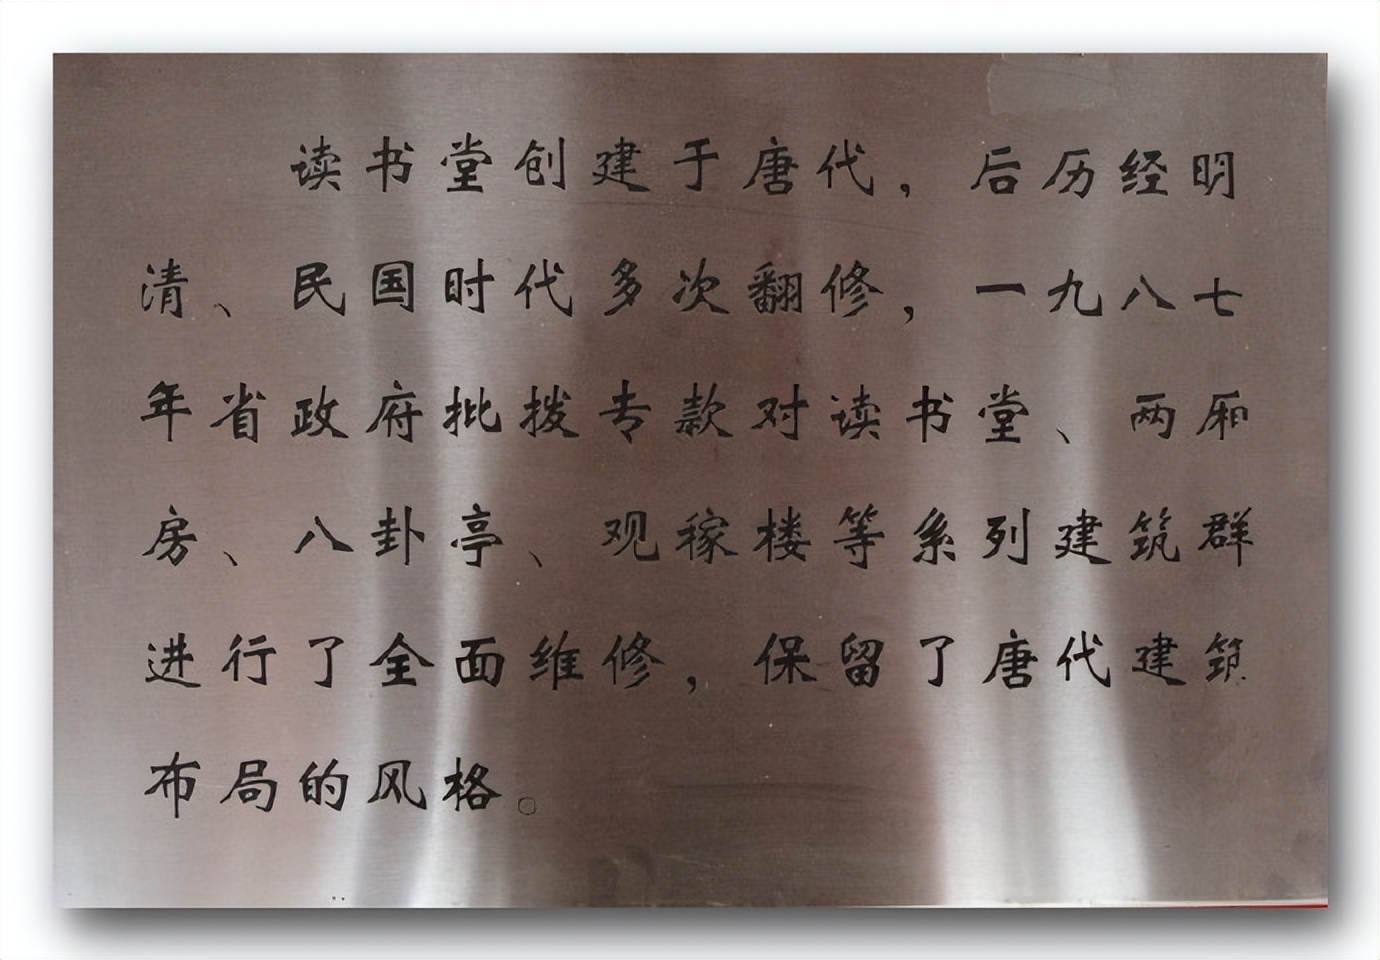 读书堂创建于唐代，后历经明
清、民国时代多次翻修，一九八七
年省政府批拨专款对读书堂、两厢
房、八卦亭、观稼楼等系列建筑群
进行了全面维修，保留了唐代建筑
布局的风格。